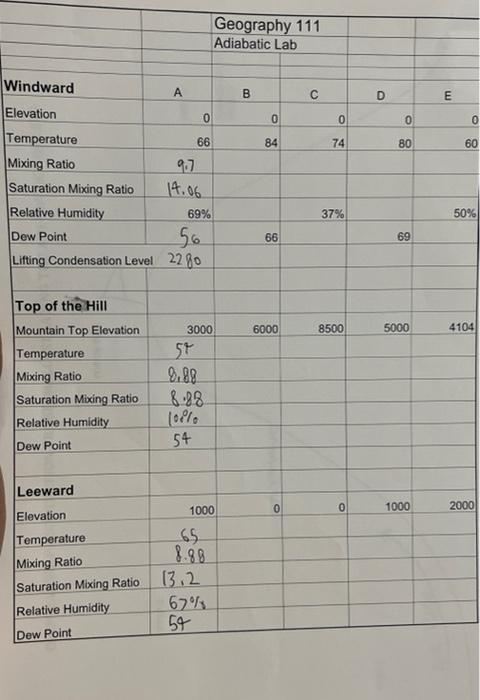 Geography 111
Adiabatic Lab
Windward A B C D E
Elevation 0 0 0 0 0
Temperature 66 84 74 80 60
Mixing Ratio 9.7
Saturation Mixing Ratio 14.06
Relative Humidity 69% 37% 50%
Dew Point 56 66 69
Lifting Condensation Level 2280
Top of the Hill
Mountain Top Elevation 3000 6000 8500 5000 4104
Temperature 54
Mixing Ratio 8.88
Saturation Mixing Ratio 8.88
Relative Humidity 100%
Dew Point 54
Leeward
Elevation 1000 0 0 1000 2000
Temperature 65
Mixing Ratio 8.88
Saturation Mixing Ratio 13.2
Relative Humidity 67%
Dew Point 54